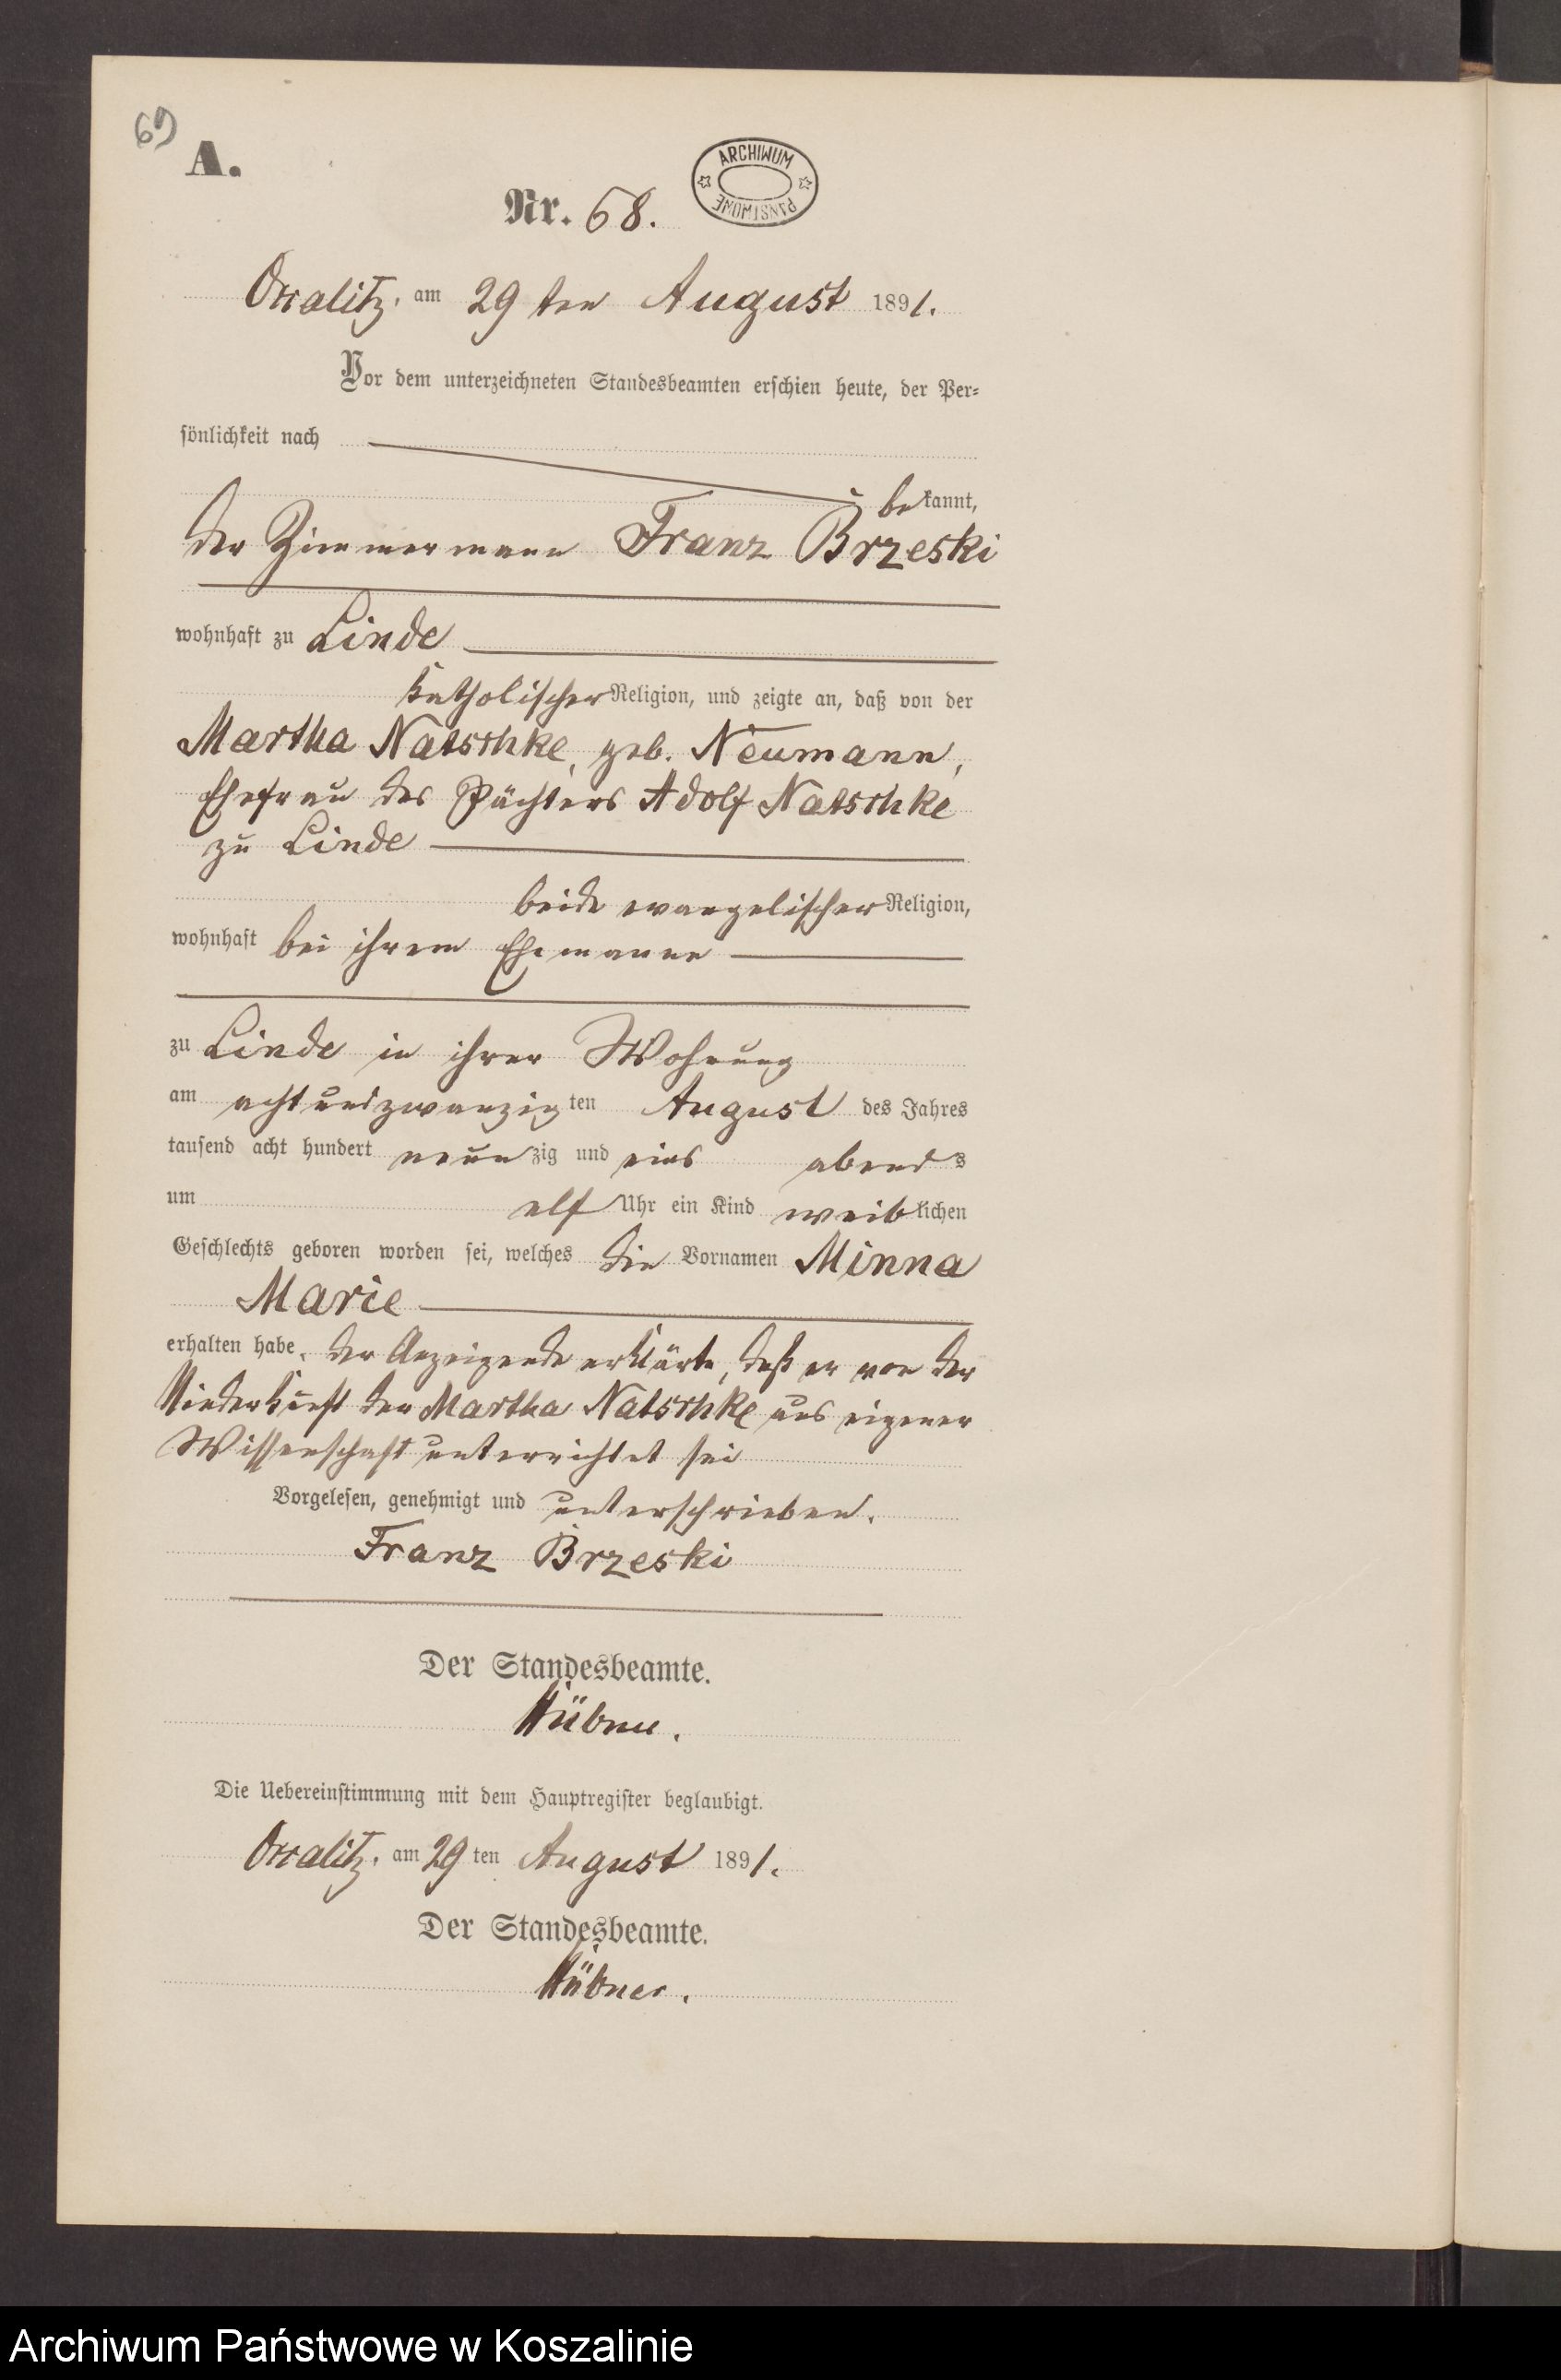 69
A.
Nr. 68.
ARCHIWUM PAŃSTWOWE
Occalitz, am 29 ten August 1891.
Vor dem unterzeichneten Standesbeamten erschien heute, der Per-
sönlichkeit nach
bekannt,
der Zimmermann Franz Brzeski
wohnhaft zu Linde
katholischer Religion, und zeigte an, daß von der
Martha Natschke, geb. Neumann,
Ehefrau des Pächters Adolf Natschke
zu Linde
beide evangelischer Religion,
wohnhaft bei ihrem Ehemanne
zu Linde in ihrer Wohnung
am achtundzwanzigten August des Jahres
tausend acht hundert neunzig und eins abends
um elf Uhr ein Kind weiblichen
Geschlechts geboren worden sei, welches die Vornamen Minna
Marie
erhalten habe. Der Anzeigende erklärte, daß er von der
Niederkunft der Martha Natschke aus eigener
Wissenschaft unterrichtet sei
Vorgelesen, genehmigt und unterschrieben.
Franz Brzeski
Der Standesbeamte.
Hübner.
Die Uebereinstimmung mit dem Hauptregister beglaubigt.
Occalitz, am 29 ten August 1891.
Der Standesbeamte.
Hübner.
Archiwum Państwowe w Koszalinie